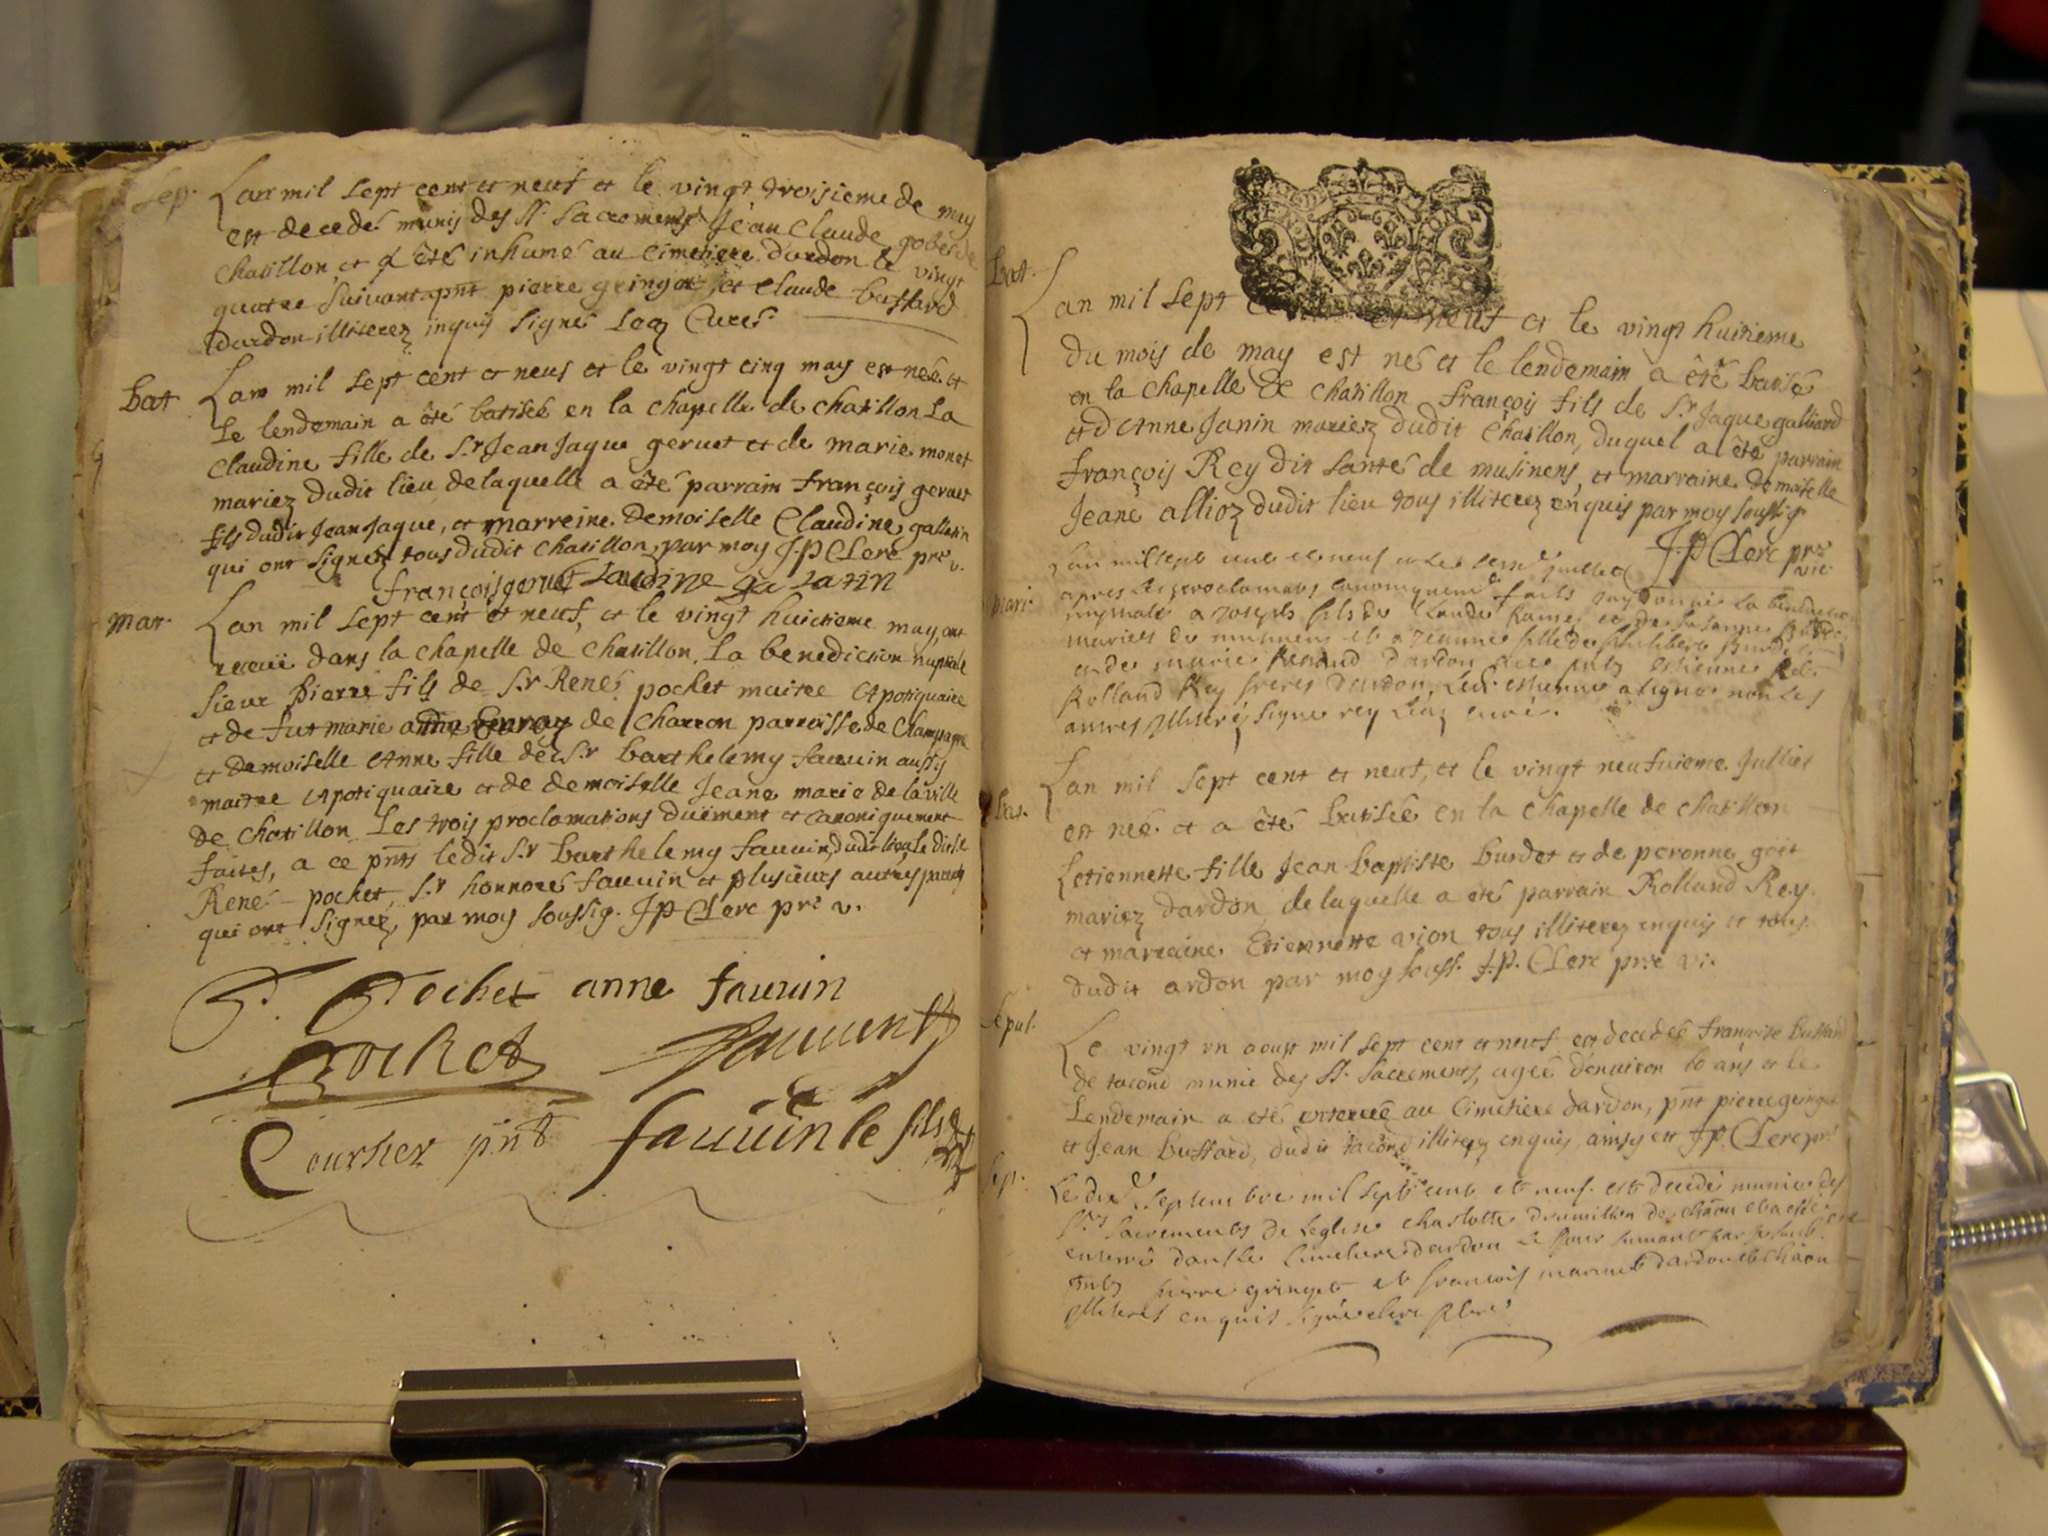 Sep. Lan mil sept cent et neuf et le vingt troisieme de may
est decedé munis des Sts. Sacremens Jean Claude gobet de
Chatillon et a été inhumé au Cimetiere dardon le vingt
quatre suivant pnt pierre gringet et Claude bustard
dardon illiterez inquis signé Leaz Curé
Bat Lan mil sept cent et neuf et le vingt cinq may est née et
Le lendemain a été batisée en la chapelle de chatillon La
Claudine fille de Sr Jean Jaque geruet et de marie monet
mariez dudit lieu de laquelle a été parrain françois geruet
fils dudit Jean Jaque, et marreine demoiselle Claudine gallatin
qui ont signez tous dudit chatillon, par moy J.P Clerc pre v.
françois geruet Claudine ga latin
mar Lan mil sept cent et neuf, et le vingt huictieme may ont
receü dans la chapelle de chatillon La benediction nuptiale
Sieur Pierre fils de Sr René pochet maitre Apotiquaire
et de fut marie de Charron parroisse de Champagne
et demoiselle Anne fille de Sr barthelemy fauuin aussy
maitre Apotiquaire et de demoiselle Jeane marie de laville
de Chatillon Les trois proclamations düement et canoniquement
faites, a ce pnts ledit Sr barthelemy fauuin, dudit lieu, le dit Sr
René pochet, Sr honnoré fauuin et plusieurs autres
qui ont signez, par moy soussig. J p Clerc pre v.
P. Pochet anne fauuin
Pochet fauuin
Courtier pnt fauuin le fils
Bat. Lan mil sept et neuf et le vingt huitieme
du mois de may est né et le lendemain a été batisé
en la chapelle de chatillon françois fils de Sr Jaque galliard
et d'Anne Janin mariez dudit Chatillon, duquel a été parrain
françois Rey dit santé de musinens, et marraine demoiselle
Jeane allioz dudit lieu tous illiterez enquis par moy soussig
J.P Clerc pre vic
mari. Lan mil sept cent et neuf et le juillet
apres les proclamats canoniquement faits jay donné La benediction
nuptiale a Joseph fils de Claude et de Susanne
mariés de musinens et a Jeanne fille de philibert
et de marie Renaud dardon pnts Estienne et
Rolland Rey freres dardon, Led. estienne a signé non les
autres Illiterés signé rey Leaz curé.
Bat. Lan mil sept cent et neuf, et le vingt neufuieme Julliet
est née et a été batisée en la chapelle de chatillon
Letiennette fille Jean baptiste burdet et de peronne goet
mariez dardon, de laquelle a été parrain Rolland Rey.
et marraine Etiennette vion tous illiterez enquis et tous
dudit ardon par moy souss. J.P. Clerc pre vi.
Sepul. Le vingt un aoust mil sept cent et neuf est decedée françoise bustard
de tacond munie des Sts. Sacrements, agée d'enuiron 60 ans et le
Lendemain a été enterrée au Cimetiere dardon, pnt pierre gringet
et Jean bustard, dudit tacond illiterez enquis, ainsy est J.p. Clerc pre
Sep. Le dix septembre mil sept cent et neuf est decedé munie des
Sts sacrements de Leglise charlotte et a esté
enterré dans Le Cimetiere dardon Le Jour suiuant
pnts pierre gringet et francois dardon
Illiterés enquis signé clerc